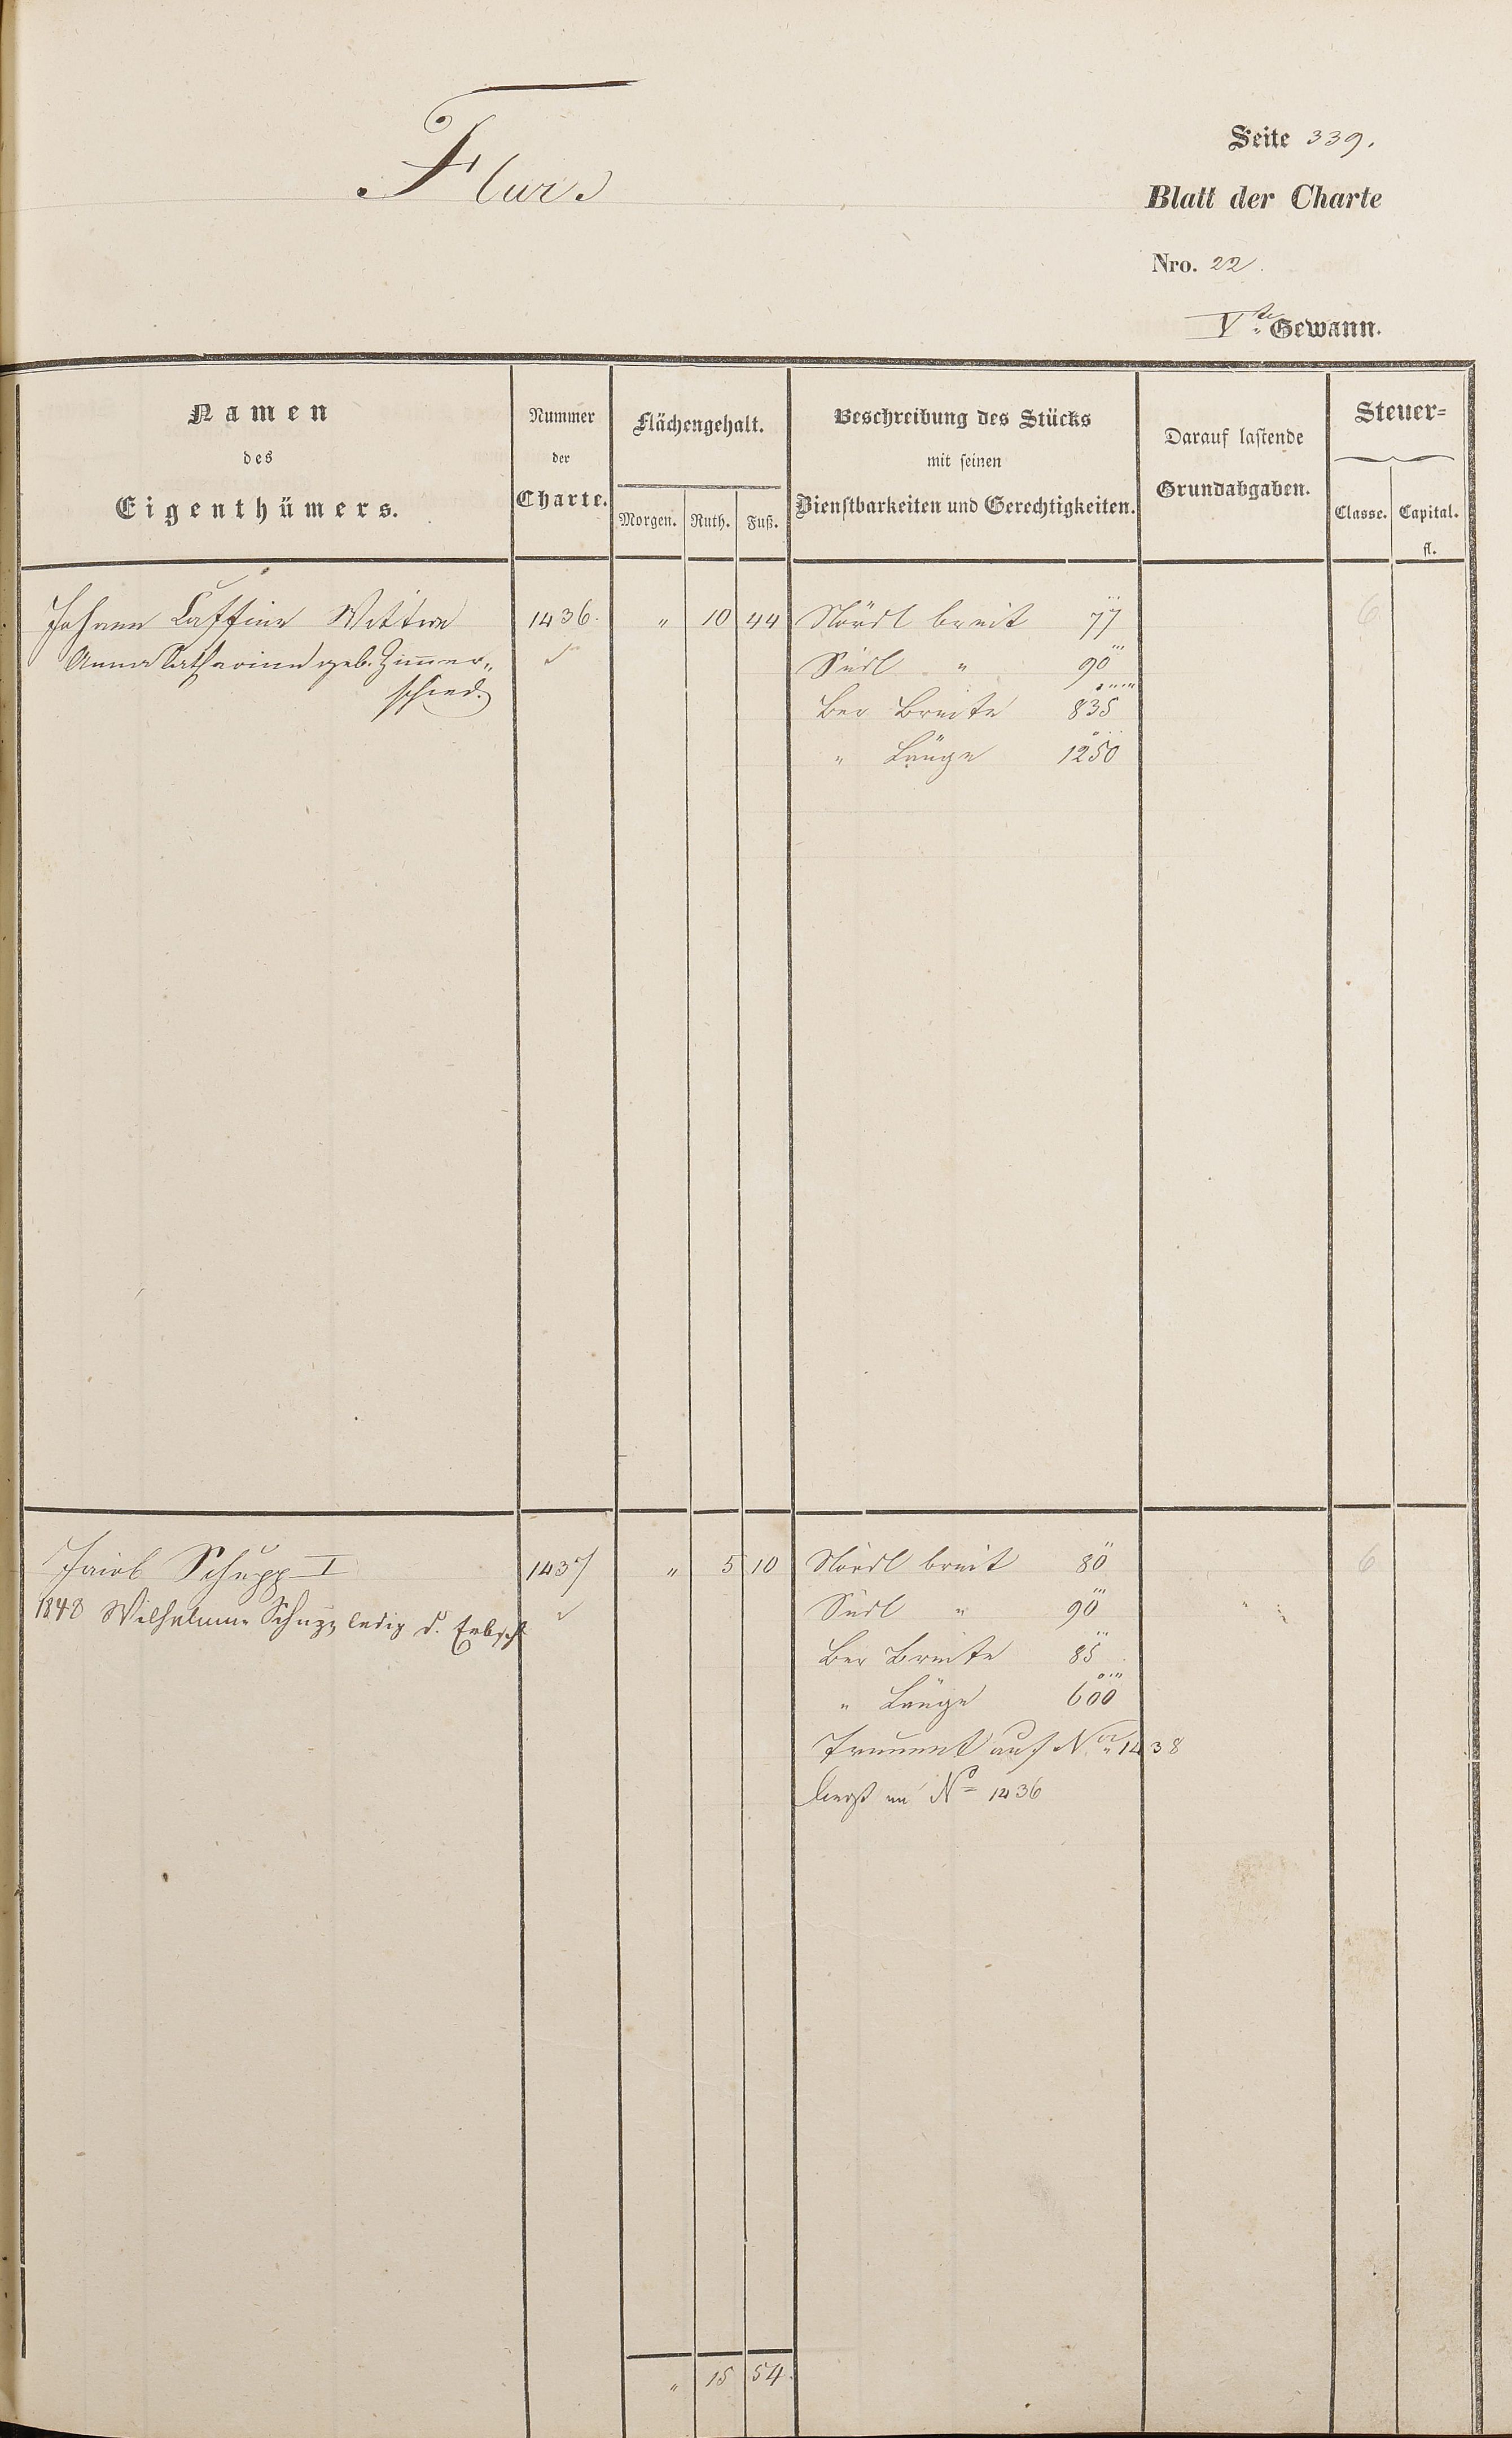 Seite 339.
Flur
Blatt der Charte
Nro. 22.
Vte Gewann.
Namen des Eigenthümers.
Nummer der Charte.
Flächengehalt.
Morgen. Ruth. Fuß.
Beschreibung des Stücks mit seinen Dienstbarkeiten und Gerechtigkeiten.
Darauf lastende Grundabgaben.
Steuer=
Classe. Capital. fl.
Johann Caffine Wittwe 1436. " 10 44 Nördl breit 77 6
Anna Catharina geb. Zimmer„ Südl " 90
schied. Ber Breite 835
" Länge 1250
Jacob Schupp I 1437 " 5 10 Nördl breit 80 6
1848 Wilhelmine Schupp ledig d. Erbsch Südl " 90
Ber Breite 85
" Länge 600
auf No 1438
an No 1436
" 15 54.